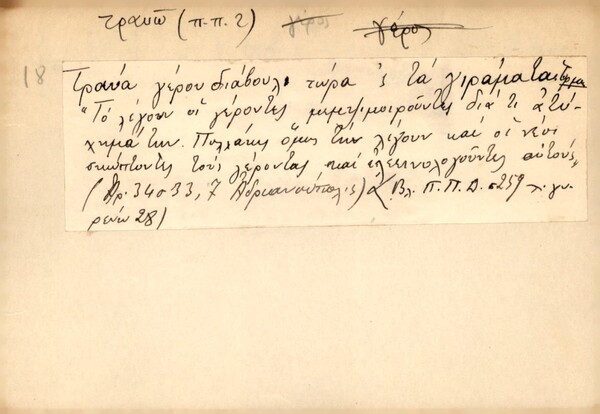 τρανῶ (π.π. 2) γέρος γέρος
18
Τρανά γέρου διάβουλε τώρα 's τά γιράματα
"Τό λέγουν οἱ γέροντες μεμψιμοιροῦντες διά τι ἀτύ-
χημά των. Πολλάκις ὅμως τήν λέγουν καί οἱ νέοι
σκώπτοντες τούς γέροντας καί εἰρωνολογοῦντες αὐτούς,
(Ἀρ. 34 σ 33, 7 Ἀδριανούπολις) (Βλ. Π.Π.Δ. σ 259 λ. γυ-
ρεύω 28)